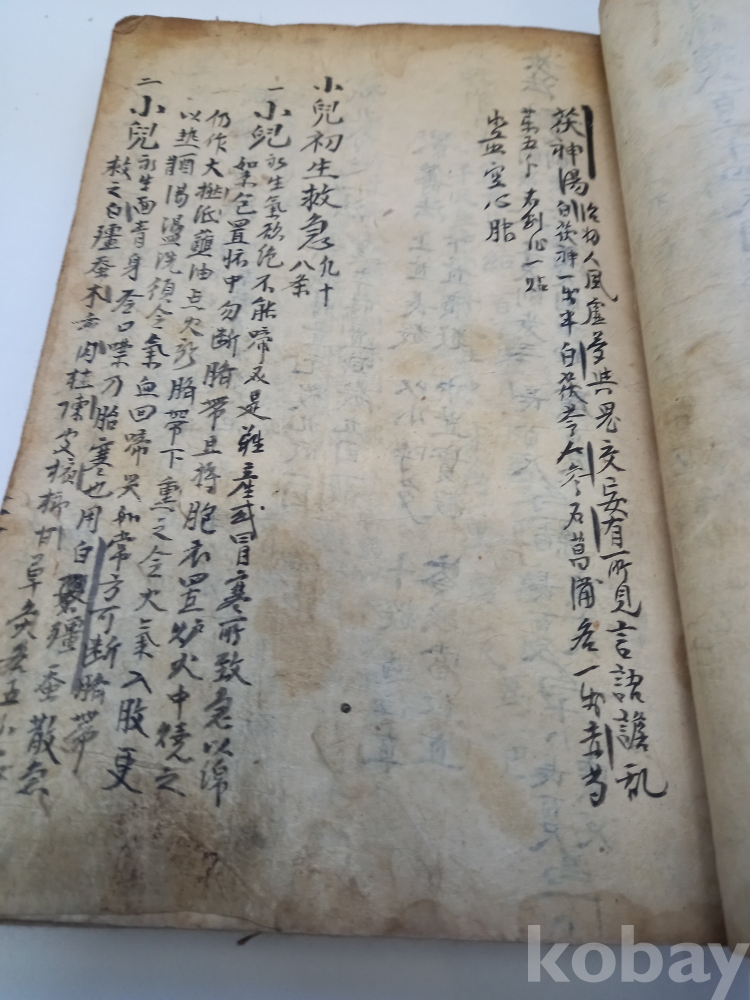 茯神湯 治妇人風虛与共鬼交妄有所見言語譫乱
白茯神一㦮半白茯苓人參石菖蒲各一㦮赤芍
五卜右剉作一貼
空心服
小兒初生救急 九十八条
一小兒初生氣欲絶不能啼必是難産或冒寒所致急以綿
絮包置怀中勿断臍帶且將胞衣置炉火中燒之
仍作大撚低蘸油点火於臍帶下熏之令火氣入腹更
以熱醋湯盪洗須令氣血回啼哭如常方可断臍帶
二小兒初生面青身冷口噤乃胎寒也用白殭蚕散急
救之白殭蚕木香肉桂陳皮檳榔甘草炙各五卜
kobay